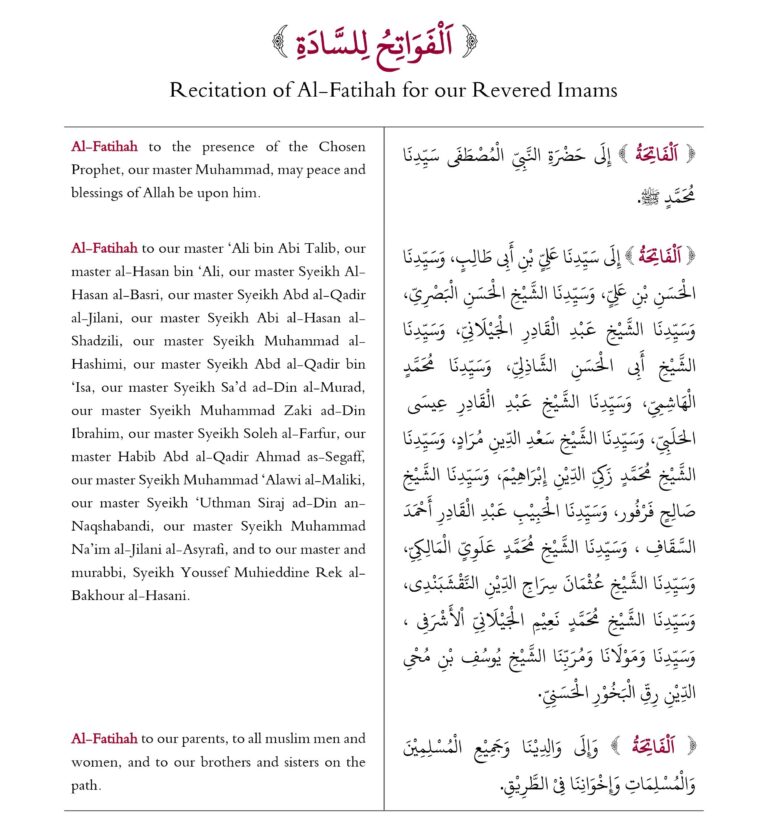 ﴿ اَلْفَوَاتِحُ لِلسَّادَةِ ﴾
Recitation of Al-Fatihah for our Revered Imams
Al-Fatihah to the presence of the Chosen
Prophet, our master Muhammad, may peace and
blessings of Allah be upon him.
﴿ اَلْفَاتِحَةُ ﴾ إِلَى حَضْرَةِ النَّبِيِّ الْمُصْطَفَى سَيِّدِنَا
مُحَمَّدٍ ﷺ.
Al-Fatihah to our master ‘Ali bin Abi Talib, our
master al-Hasan bin ‘Ali, our master Syeikh Al-
Hasan al-Basri, our master Syeikh Abd al-Qadir
al-Jilani, our master Syeikh Abi al-Hasan al-
Shadzili, our master Syeikh Muhammad al-
Hashimi, our master Syeikh Abd al-Qadir bin
‘Isa, our master Syeikh Sa’d ad-Din al-Murad,
our master Syeikh Muhammad Zaki ad-Din
Ibrahim, our master Syeikh Soleh al-Farfur, our
master Habib Abd al-Qadir Ahmad as-Segaff,
our master Syeikh Muhammad ‘Alawi al-Maliki,
our master Syeikh ‘Uthman Siraj ad-Din an-
Naqshabandi, our master Syeikh Muhammad
Na’im al-Jilani al-Asyrafi, and to our master and
murabbi, Syeikh Youssef Muhieddine Rek al-
Bakhour al-Hasani.
﴿ اَلْفَاتِحَةُ ﴾ إِلَى سَيِّدِنَا عَلِيِّ بْنِ أَبِى طَالِبٍ، وَسَيِّدِنَا
الْحَسَنِ بْنِ عَلِيٍّ، وَسَيِّدِنَا الشَّيْخِ الْحَسَنِ الْبَصْرِيِّ،
وَسَيِّدِنَا الشَّيْخِ عَبْدِ الْقَادِرِ الْجَيْلَانِيِّ، وَسَيِّدِنَا
الشَّيْخِ أَبِى الْحَسَنِ الشَّاذِلِيِّ، وَسَيِّدِنَا مُحَمَّدٍ
الْهَاشِمِيِّ، وَسَيِّدِنَا الشَّيْخِ عَبْدِ الْقَادِرِ عِيسَى
الْحَلَبِيِّ، وَسَيِّدِنَا الشَّيْخِ سَعْدِ الدِّينِ مُرَادٍ، وَسَيِّدِنَا
الشَّيْخِ مُحَمَّدٍ زَكِيِّ الدِّيْنِ إِبْرَاهِيْمَ، وَسَيِّدِنَا الشَّيْخِ
صَالِحٍ فَرْفُور، وَسَيِّدِنَا الْحَبِيْبِ عَبْدِ الْقَادِرِ أَحْمَدَ
السَّقَافِ ، وَسَيِّدِنَا الشَّيْخِ مُحَمَّدٍ عَلَوِيِّ الْمَالِكِيِّ،
وَسَيِّدِنَا الشَّيْخِ عُثْمَانَ سِرَاجِ الدِّيْنِ النَّقْشَبَنْدِى،
وَسَيِّدِنَا الشَّيْخِ مُحَمَّدٍ نَعِيْمِ الْجَيْلَانِيِّ اْلأَشْرَفِى ،
وَسَيِّدِنَا وَمَوْلَانَا وَمُرَبِّنَا الشَّيْخِ يُوسُفِ بْنِ مُحْيِ
الدِّيْنِ رِقِّ الْبَخُوْرِ الْحَسَنِيِّ.
Al-Fatihah to our parents, to all muslim men and
women, and to our brothers and sisters on the
path.
﴿ اَلْفَاتِحَةُ ﴾ وَإِلَى وَالِدِيْنَا وَجَمِيْعِ الْمُسْلِمِيْنَ
وَالْمُسْلِمَاتِ وَإِخْوَانِنَا فِيْ الطَّرِيْقِ.